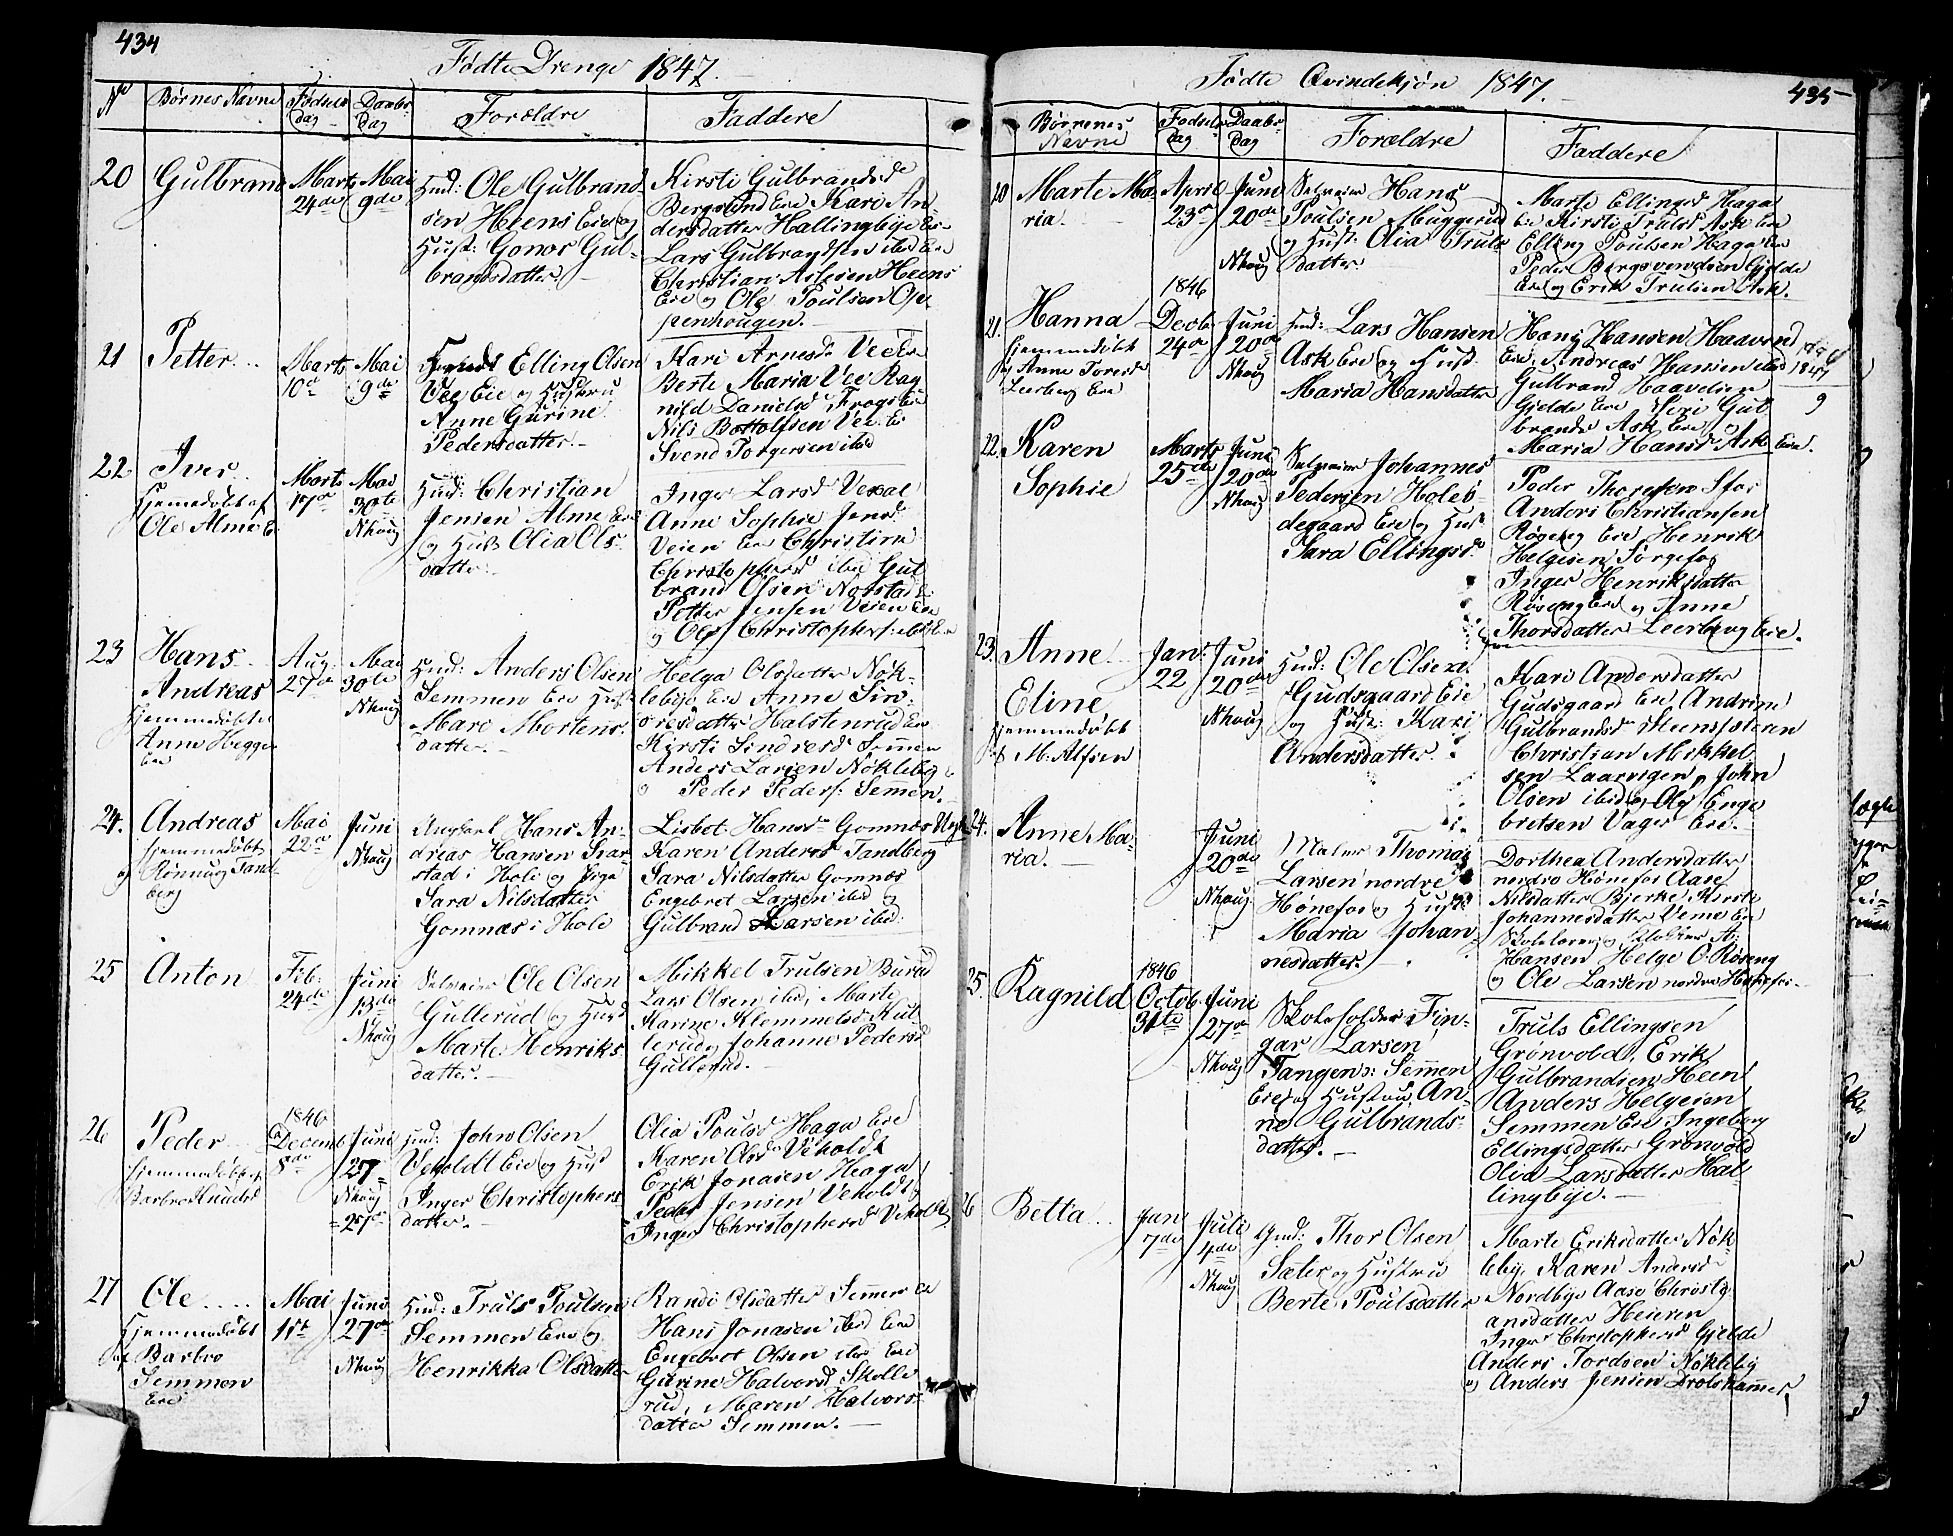 434
Fødte Drenge 1847.
No
Børnes Navne
Fødsels
dag
Daabs
Dag
Forældre
Faddere
20
Gulbrand
Marts
24de
Mai
9de
Huusmd: Ole Gulbrand
sen Heens Eie og
Hust: Gonor Gul-
brandsdatter.
Kirsti Gulbrandsd.
Bergsund Eie Kari An
dersdatter Hallingbye Eie
Lars Gulbrandsen ibid Eie
Christian Aslesen Heens
Eie og Ole Poulsen Op
penhougen.
21
Petter
Marts
10de
Mai
9de
Elling Olsen
Vee Eie og Hustru
Anne Gurine
Pedersdatter.
Kari Arnesd. Vee Eie
Berte Maria Vee Rag
nild Danielsd. Frogs Eie
Nils Bottolfsen Vee Ei
Svend Torgersen ibid
22
Iver
Hjemmedøbt af
Ole Alme E.
Marts
17de
Mai
30te
Nhoug
Christian
Jensen Alme Eie
og Hust. Olia Ols
datter.
Inger Larsd. Vexal
Anne Sophie Jensd
Veien Eie Christine
Christophersd ibid Gul
brand Olsen Norstad E.
Petter Jensen Veien Eie
og Ole Christophers: ibid Eie
23
Hans
Andreas
Hjemmedøbt af
Anne Hegge
Eie
Aug.
27de
Mai
30te
Nhoug
Anders Olsen
Semmen Eie Hust
Mari Mortens
datter.
Helga Olsdatter Nøk-
lebye Eie Anne Sin-
dresdatter Halstenrud Eie
Kirsti Sindresd. Semmen
Anders Larsen Nøkleby
og Peder Peders: Semmen.
24.
Andreas
hjemmedøbt
af Rønnaug Tand-
berg
Mai
22de
Juni
Nhoug
Ungkarl Hans An-
dreas Hansen Svar-
stad i Hole og Pige
Sara Nilsdatter
Gomnæs i Hole
Lisbet Hansd. Gomnæs
Karen Andersd. Tandberg
Sara Nilsdatter Gomnæs
Engebret Larsen ibid og
Gulbrand Larsen ibid:
25
Anton
Feb:
24de
Juni
13de
Nhoug
Selveier Ole Olsen
Gullerud og Hust
Marte Henriks
datter.
Mikkel Trulsen Burud
Lars Olsen ibid, Marte
Karine Klemmetsd Kul
lerud og Johanne Pedersd
Gullerud.
26
Peder
hjemmedøbt af
Barbro Knudsd
1846
Decemb
8de
Juni
27
Nhoug
27de
John Olsen
Veholdt Eie og Hust
Inger Christophers
datter.
Olia Poulsd Haga Eie
Karen Olsd Veholdt
Erik Jonasen Haga
Peder Jensen Veholdt og
Inger Christophersd Veholdt
27
Ole
Hjemmedøbt
af Barbro
Semmen
Eie
Mai
1st
Juni
27de
Nhoug
Truls Poulsen
Semmen Eie og
Henrikka Olsdatter
Randi Olsdatter Semmen Eie
Hans Jonasen ibid Eie
Engebret Olsen ibid Eie
Gurine Halvorsd Skolle
rud, Maren Halvors-
datter Semmen.
Fødte Qvindekjøn 1847.
435
Børnenes
Navne
Fødsels
Dag
Daabs
Dag
Forældre
Faddere
20
Marte Ma-
ria.
April
23de
Juni
20de
Nhoug
Selveier Hans
Poulsen Muggerud
og Hust: Olia Truls
datter.
Marte Ellingsd Haga
Eie Kirsti Trulsd Ask Eie
Elling Poulsen Haga Eie
Peder Bergsvendsen Gjelde
Eie og Erik Trulsen Ask.
21.
Hanna
hjemmedøbt
af Anne Toresd
Leerberg Eie
1846
Decbr
24de
Juni
20de
Nhoug
Lars Hansen
Ask Eie og Hust
Maria Hansdatter
Hans Hansen Haavend
Eie, Andreas Hansen ibid
Gulbrand Haavelsen
Gjelde Eie Siri Gul
brandsd Ask Eie og
Maria Hansd Ask Eie.
1847
9
22.
Karen
Sophie
Marts
25de
Juni
20de
Nhoug
Selveier Johannes
Pedersen Holes-
degaard Eie og Hust
Sara Ellingsd.
Peder Thoresen
Anders Christiansen
Røgeng Eie Henrik
Helgesen Sørgefos
Inger Henriksdatter
Røseng Eie og Anne
Thorsdatter Leerberg Eie.
23.
Anne
Eline
hjemmedøbt
af M: Alfsen
Jan:
22
Juni
20de
Nhoug
Ole Olsen
Gudsgaard Eie
og Hust: Kari
Andersdatter.
Kari Andersdatter
Gudsgaard Eie Andrine
Gulbrandsd.
Christian Mikkel
sen Laarvigen, John
Olsen ibid og Ole Enge
bretsen Vager Eie.
24.
Anne Ma-
ria.
Juni
20de
Nhoug
Maler Thomas
Larsen nordre
Hønefos og Hust
Maria Johan-
nesdatter.
Dorthea Andersdatter
nordre Hønefos Aase
Nilsdatter Bjerke Kirsti
Johannesdatter Veme Eie
Hansen Helge O. Røseng
og Ole Larsen nordre Hønefos
25.
Ragnild
1846
Octob
31te
Juni
27de
Nhoug
Skoleholder Fin-
gar Larsen
Tangen: Semmen
Eie og Hustru An-
ne Gulbrands-
datter.
Truls Ellingsen
Grønvold, Erik
Gulbrandsen Heen
Anders Helgesen
Semmen Eie, Ingeborg
Ellingsdatter Grønvold
Olia Larsdatter Hal
lingbye.
26
Betta
Jan
7de
Juli
4de
Nhoug
Gmd: Thor Olsen
Sæter og Hustru
Berte Poulsdatter
Marte Eriksdatter Nøk-
lebye Karen Andersd
Nordbye Aase Christi-
ansdatter Heieren
Inger Christophersd Gjelde
Anders Tordsen Nøkleby
og Anders Jensen Drolshammer